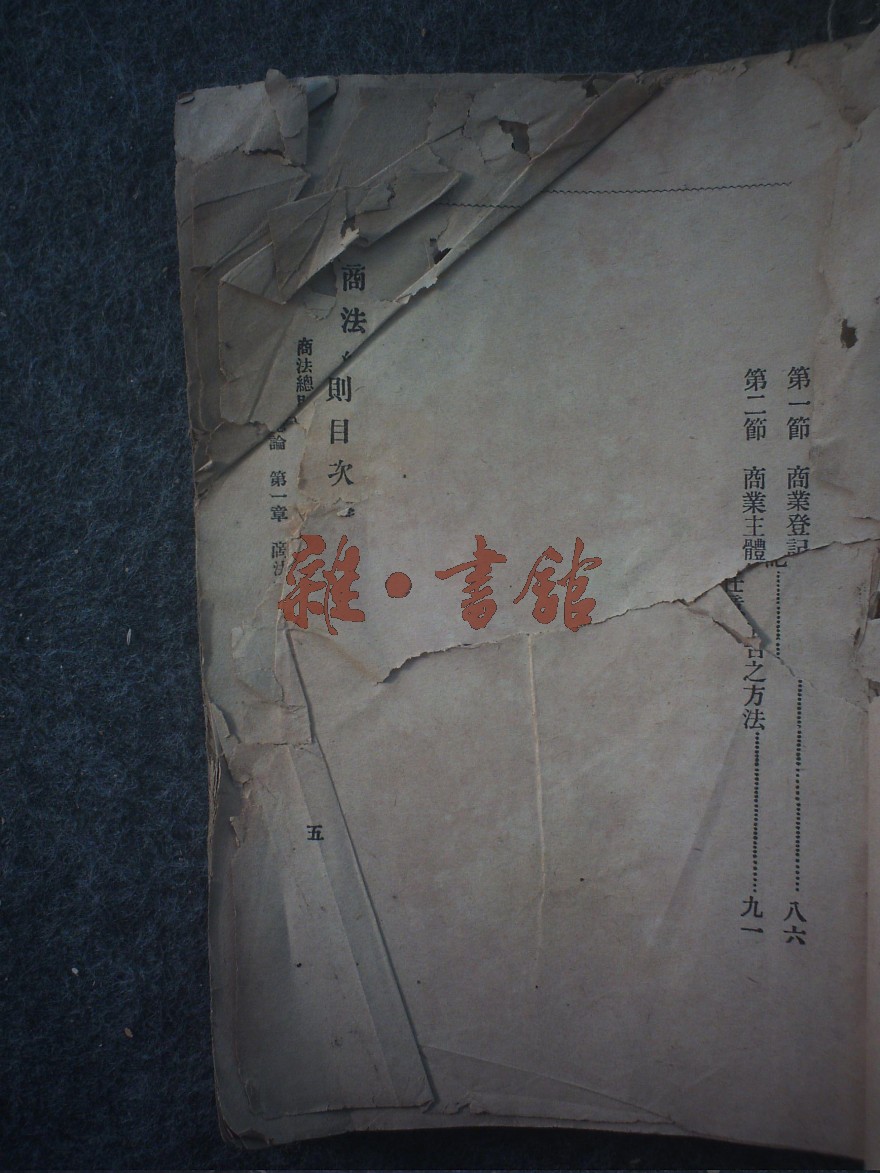 第一節　商業登記……………………八六
第二節　商業主體　之方法……………………九一
商法　則目次
五
商法總
論　第一章　商法
雜・書館